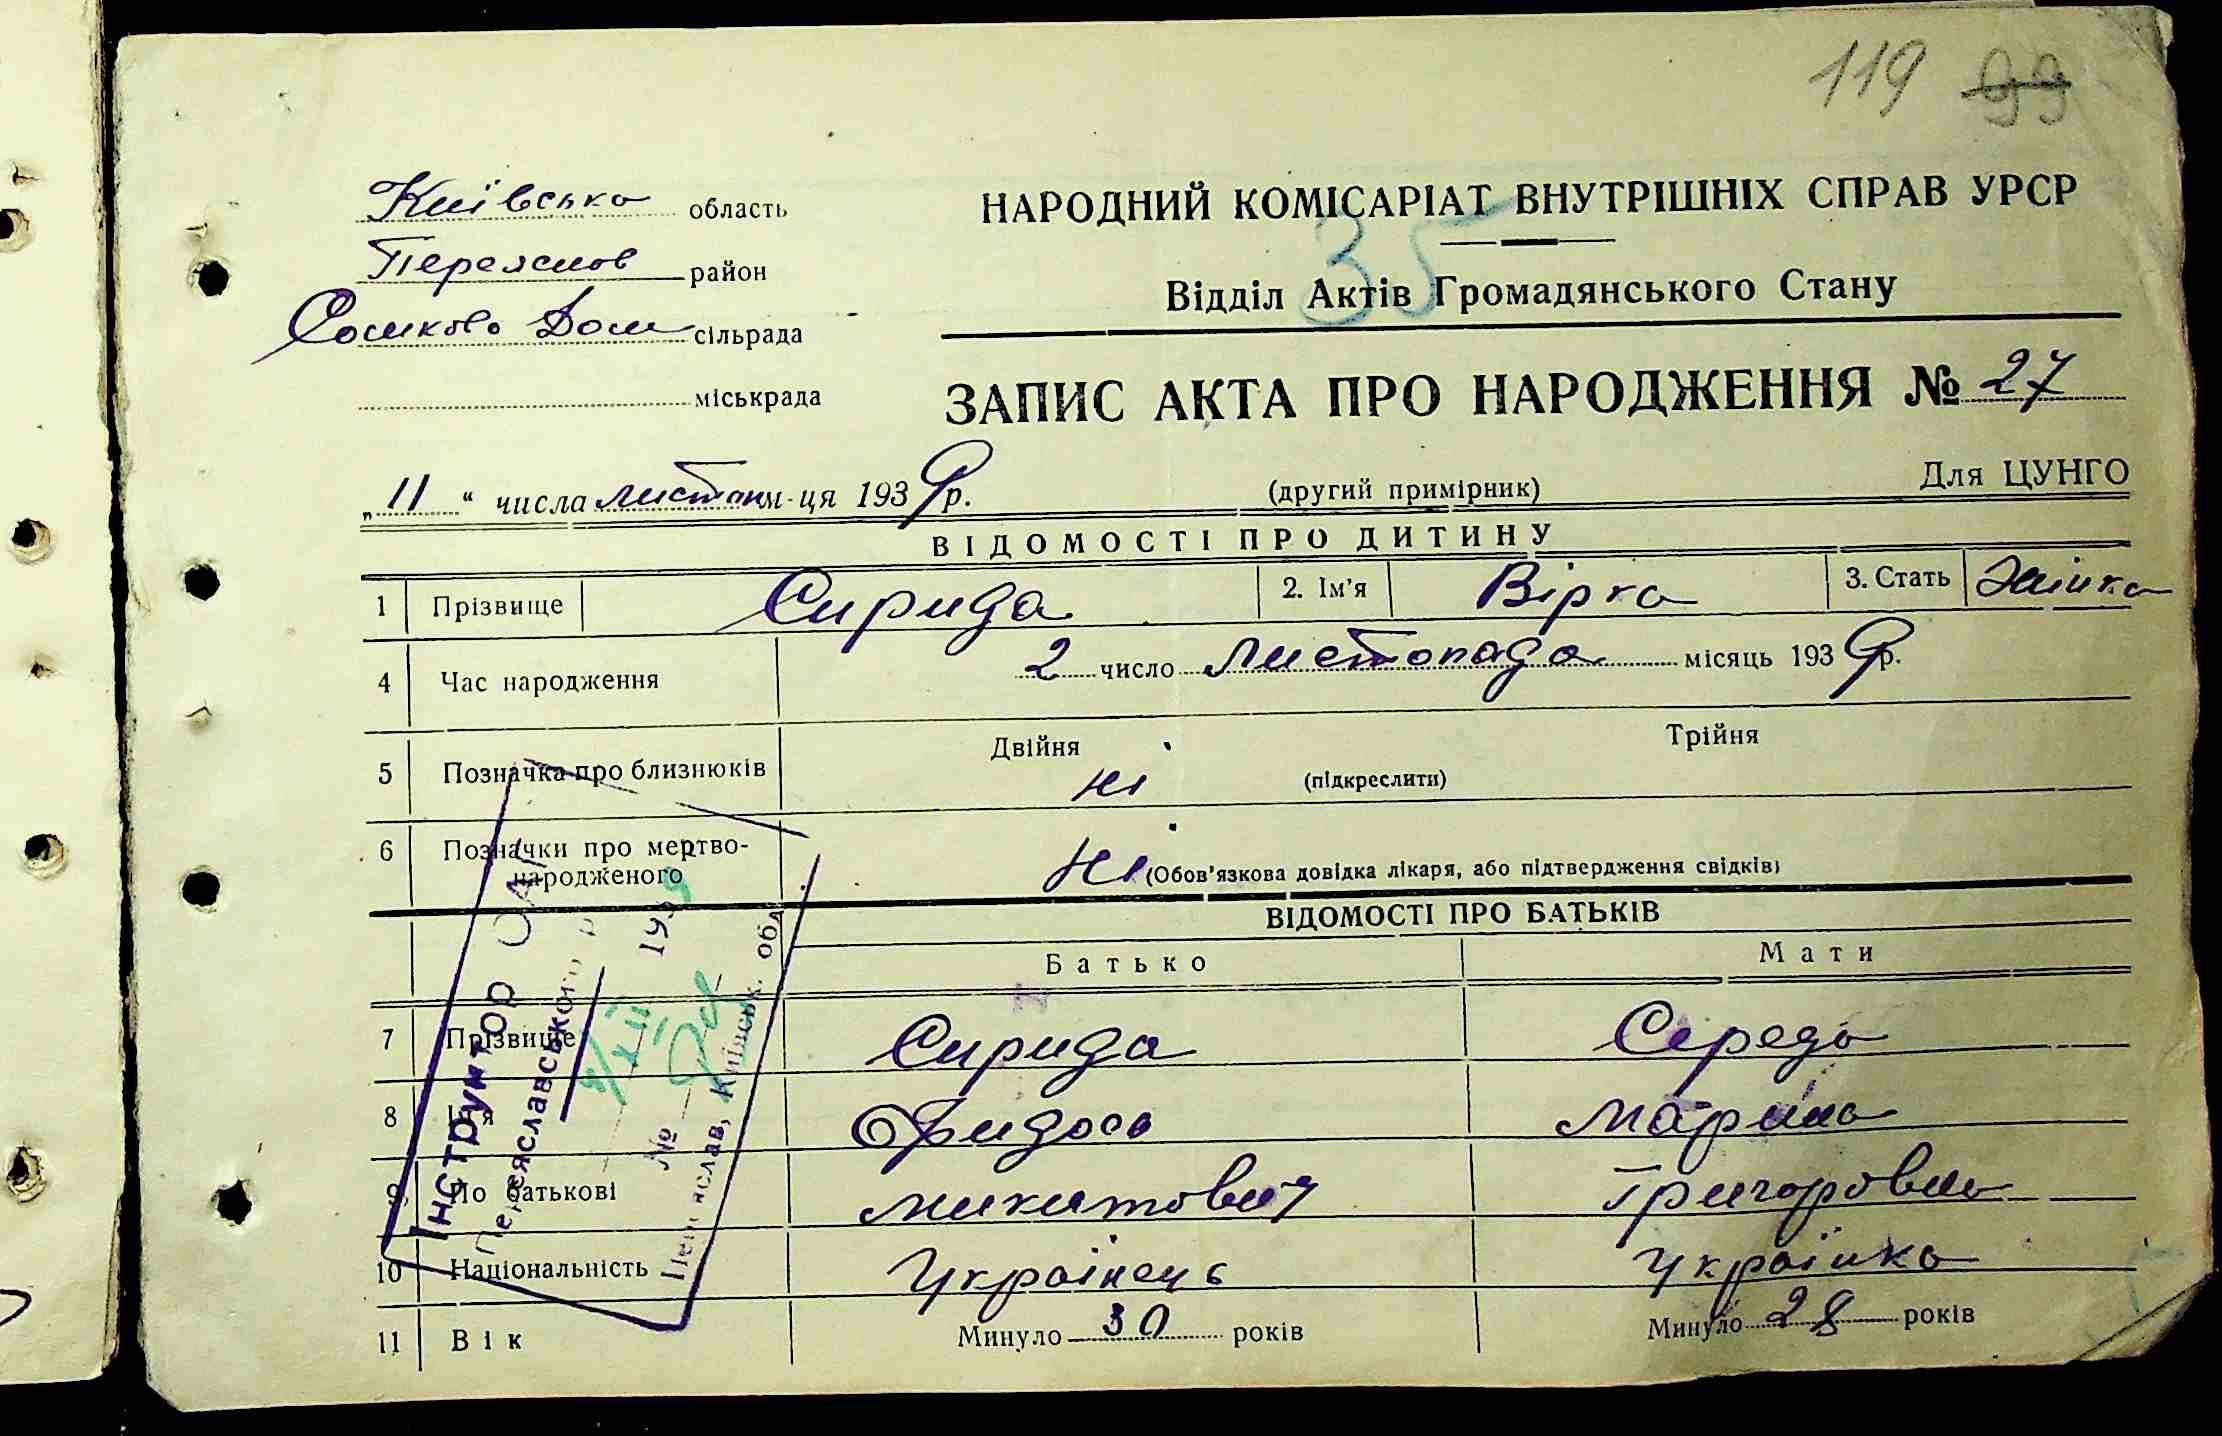 119 99
Київська область
НАРОДНИЙ КОМІСАРІАТ ВНУТРІШНІХ СПРАВ УРСР
35
Переяслов район
Відділ Актів Громадянського Стану
Сомково Дол сільрада
міськрада
ЗАПИС АКТА ПРО НАРОДЖЕННЯ № 27
„11“ числа листоп м-ця 1939 р.
(другий примірник)
Для ЦУНГО
ВІДОМОСТІ ПРО ДИТИНУ
1 Прізвище Сирида 2. Ім’я Вірка 3. Стать Жінка
4 Час народження 2 число листопада місяць 1939 р.
5 Позначка про близнюків Двійня ні (підкреслити) Трійня
6 Позначки про мертво-
народженого ні (Обов’язкова довідка лікаря, або підтвердження свідків)
ВІДОМОСТІ ПРО БАТЬКІВ
Батько Мати
7 Прізвище Сирида Середа
8 Ім’я Фидось Марина
9 По батькові микитович Григоровна
10 Національність Українець Українка
11 Вік Минуло 30 років Минуло 28 років
Інструктор ОАГ
Переяславського р
8/XII 1939
№
Переяслав, Київськ. обл